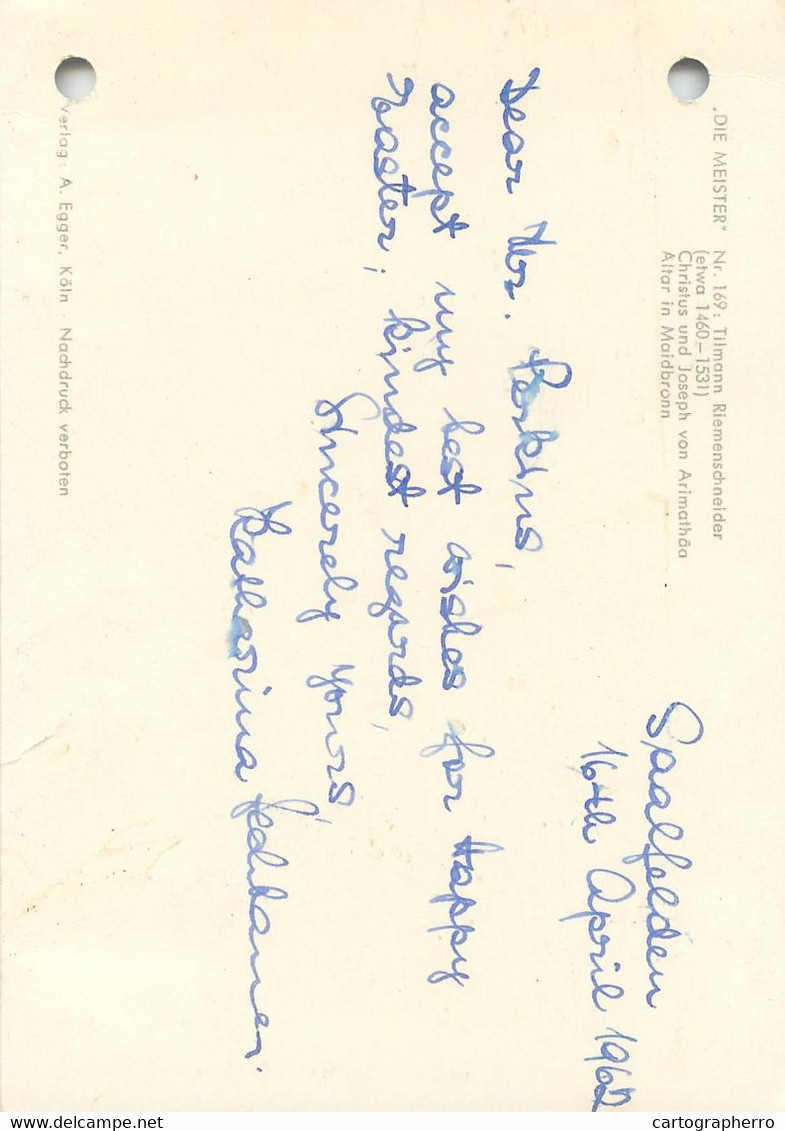 „DIE MEISTER" Nr. 169: Tilmann Riemenschneider
(etwa 1460–1531)
Christus und Joseph von Arimathäa
Altar in Maidbronn
Saalfelden
16th April 1962
Dear Mr. Perkins,
accept my best wishes for Happy
Easter, kindest regards,
Sincerely yours
Katharina
Verlag: A. Egger, Köln · Nachdruck verboten
cartographerro